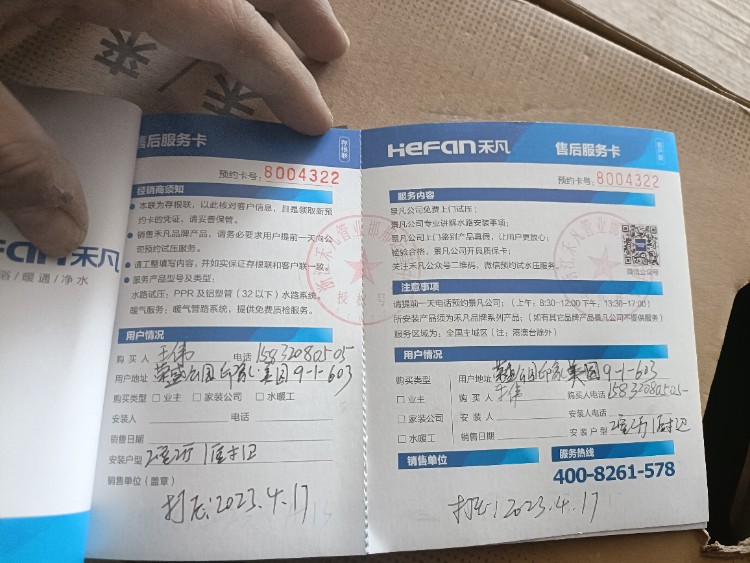 禾/来
禾
HeFan禾凡
浴/暖通/净水
售后服务卡
存根联
预约卡号:8004322
经销商须知
本联为存根联，以此核对客户信息，且是领取新预
约卡的凭证，请妥善保管。
销售禾凡品牌产品，请务必要求用户提前一天向公
司预约试压服务。
请工整填写内容，并如实保证存根联和客户联一致。
服务产品型号及类型:
水路试压: PPR 及铝塑管（32 以下）水路系统。
暖气服务: 暖气管路系统，提供免费质检服务。
用户情况
购 买 人 王伟 电话 15832080505
用户地址 荣盛花园印象·美园9-1-603
购买类型 □业主 □家装公司 □水暖工
安装人 电话
销售日期
安装户型 2室2厅1厨1卫
销售单位（盖章）
打压:2023.4.17
HeFan禾凡 售后服务卡
预约卡号:8004322
服务内容
景凡公司免费上门试压;
景凡公司专业讲解水路安装事项;
景凡公司上门鉴别产品真假，让用户更放心;
检验合格，景凡公司开具质保卡;
关注禾凡公众号二维码，微信预约试水压服务。
微信公众号
注意事项
请提前一天电话预约景凡公司:（上午: 8:30-12:00下午: 13:30-17:00）
所安装产品须为禾凡品牌系列产品;（如有其它品牌产品景凡公司不提供服务）
服务区域为: 全国主城区（注: 港澳台除外）
用户情况
购买类型 用户地址 荣盛花园印象美园9-1-603
□业主 购 买 人 王伟 购买人电话 15832080505
□家装公司 安 装 人 安装人电话
□水暖工 销售日期 安装户型 2室2厅1厨1卫
销售单位 服务热线
400-8261-578
打压:2023.4.17